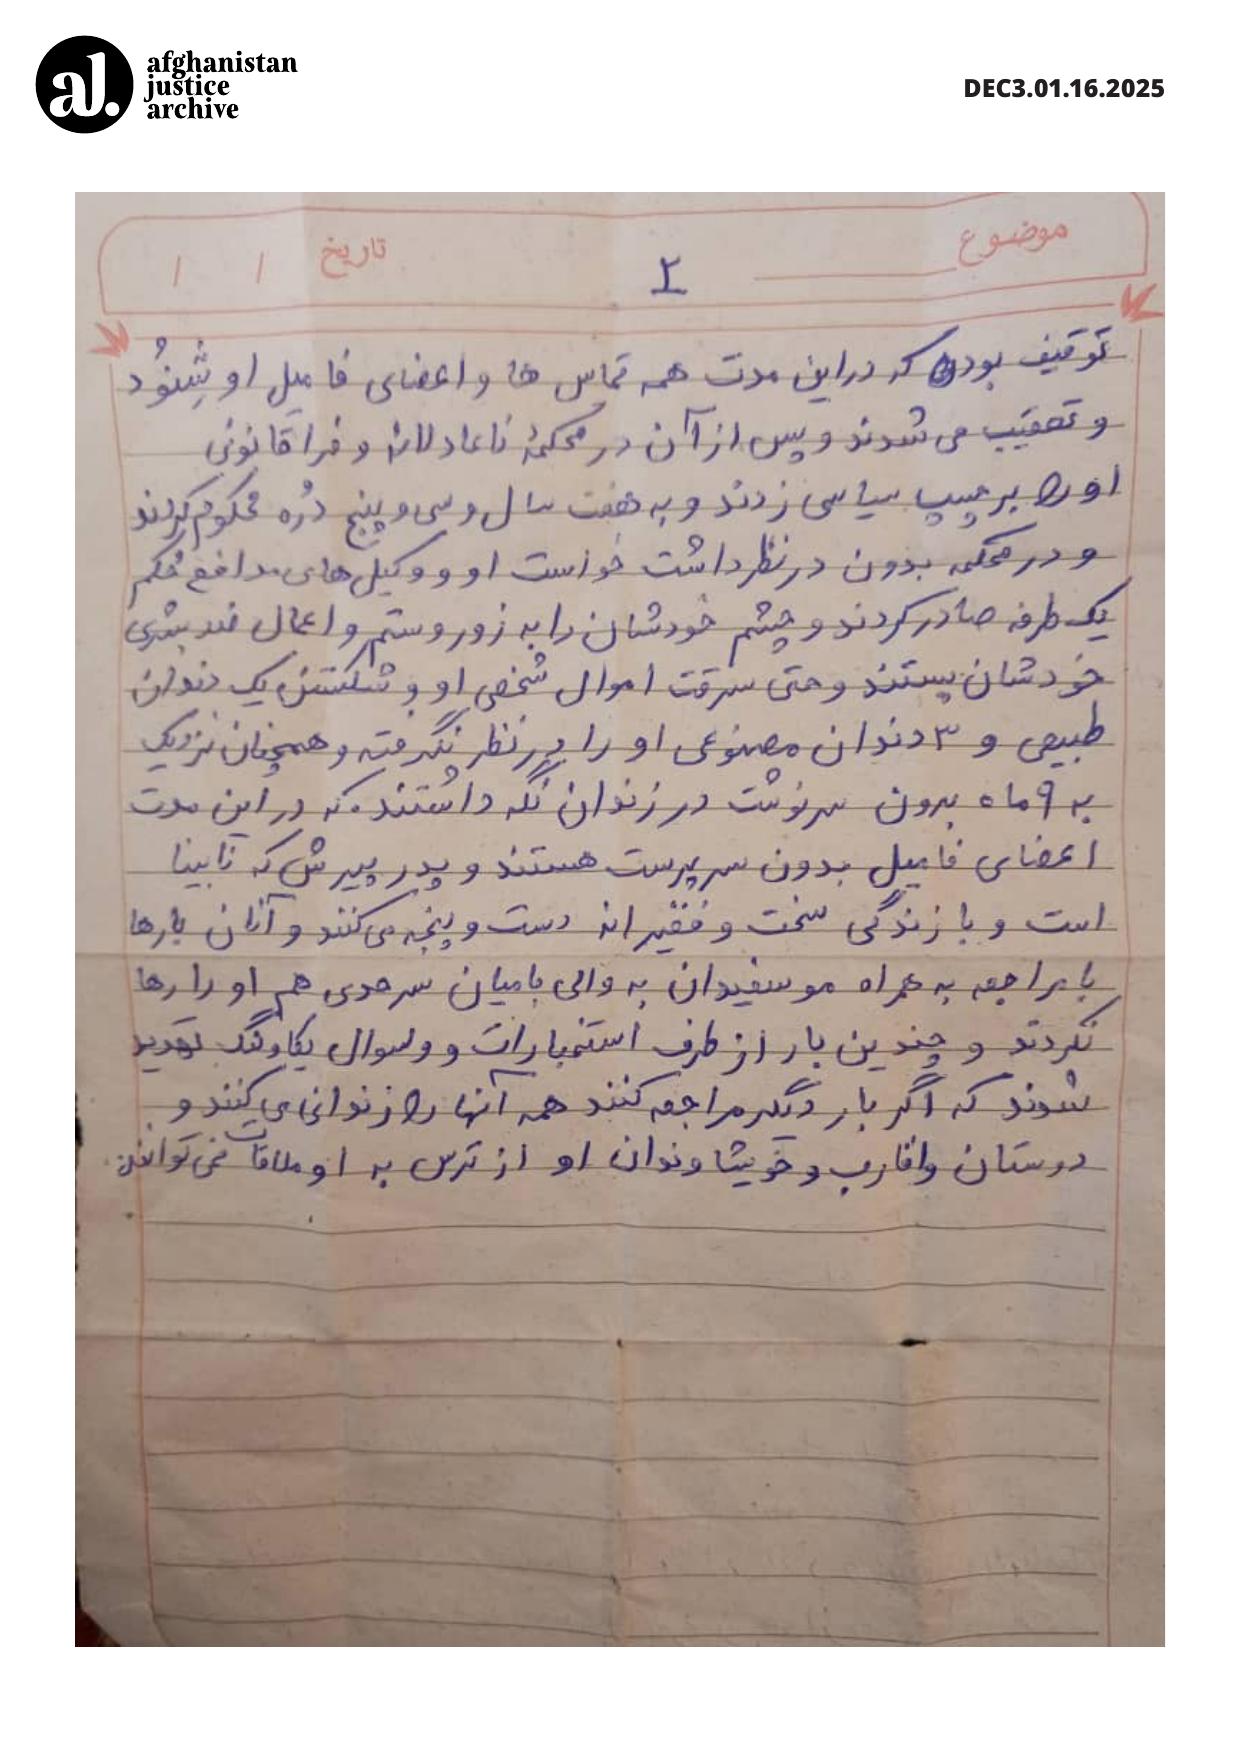 afghanistan
justice
archive
DEC3.01.16.2025
موضوع
تاریخ / /
۲
توقیف بود که در این مدت همه تماس ها و اعضای فامیل او شِنوُد
و تعقیب می شدند و پس از آن در محکمهٔ ناعادلانه و فراقانونی
او را برچسپ سیاسی زدند و به هفت سال و سی و پنج دُره محکوم کردند
و در محکمه بدون در نظر داشت خواست او و وکیل های مدافع حُکم
یک طرفه صادر کردند و چشم خودشان را به زور و ستم و اعمال ضد بشری
خودشان بستند و حتی سرقت اموال شخصی او و شکستن یک دندان
طبیعی و ۳ دندان مصنوعی او را در نظر نگرفته و همچنان نزدیک
به ۹ ماه بدون سرنوشت در زندان نگه داشتند. که در این مدت
اعضای فامیل بدون سرپرست هستند و پدر پیرش که نابینا
است و با زندگی سخت و فقیرانه دست و پنجه می کنند و آنان بارها
با مراجعه به همراه موسفیدان به والی بامیان سرحدی هم او را رها
نکردند و چندین بار از طرف استخبارات و ولسوال یکاولنگ تهدید
شوند که اگر بار دیگر مراجعه کنند همه آنها را زندانی می کنند و
دوستان و اقارب و خویشاوندان او از ترس به او ملاقات نمی توانند.